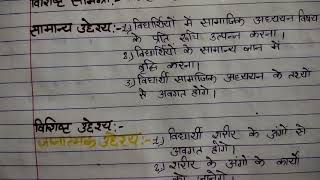 विशिष्ट
सामान्य उद्देश्य:- 1.) विद्यार्थियों में सामाजिक अध्ययन विषय
के प्रति रुचि उत्पन्न करना।
2.) विद्यार्थियों के सामान्य ज्ञान में
वृद्धि करना।
3.) विद्यार्थी सामाजिक अध्ययन के तथ्यों
से अवगत होंगे।
विशिष्ट उद्देश्य:-
ज्ञानात्मक उद्देश्य:- 1.) विद्यार्थी शरीर के अंगों से
अवगत होंगे।
2.) शरीर के अंगों के कार्यों
को जानेंगे।